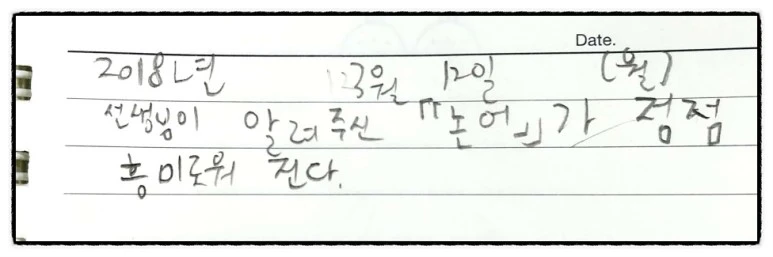 Date.
2018년 3월 12일 (월)
선생님이 알려주신 『논어』가 점점
흥미로워 진다.